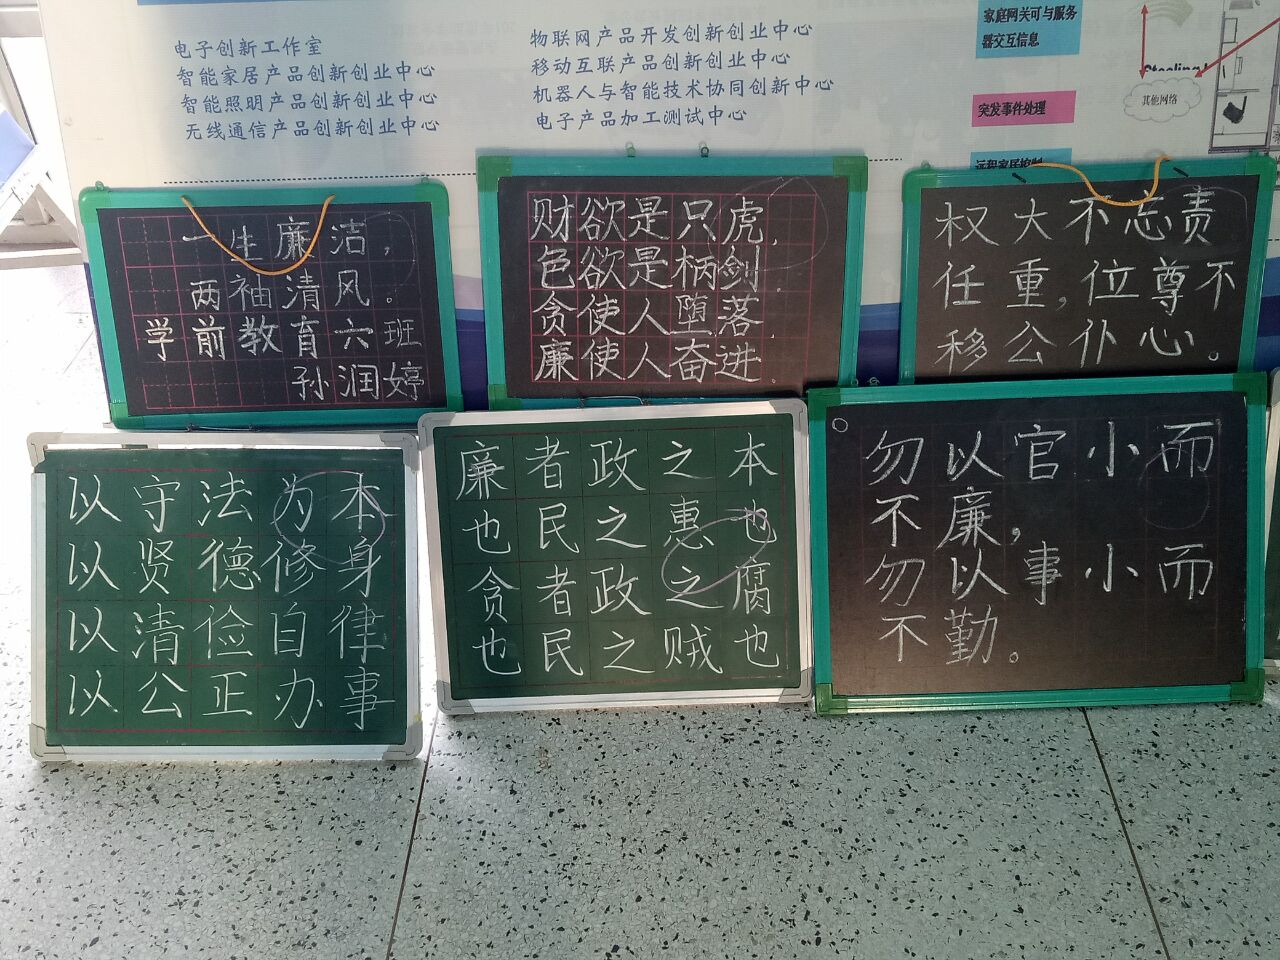 电子创新工作室
智能家居产品创新创业中心
智能照明产品创新创业中心
无线通信产品创新创业中心
物联网产品开发创新创业中心
移动互联产品创新创业中心
机器人与智能技术协同创新中心
电子产品加工测试中心
家庭网关可与服务
器交互信息
突发事件处理
远程家居控制
其他网络
一生廉洁,
两袖清风。
学前教育六班
孙润婷
财欲是只虎.
色欲是柄剑.
贪使人堕落
廉使人奋进.
权大不忘责
任重,位尊不
移公仆心。
以守法为本
以贤德修身
以清俭自律
以公正办事
廉者政之本
也民之惠也
贪者政之腐
也民之贼也
勿以官小而
不廉,
勿以事小而
不勤。